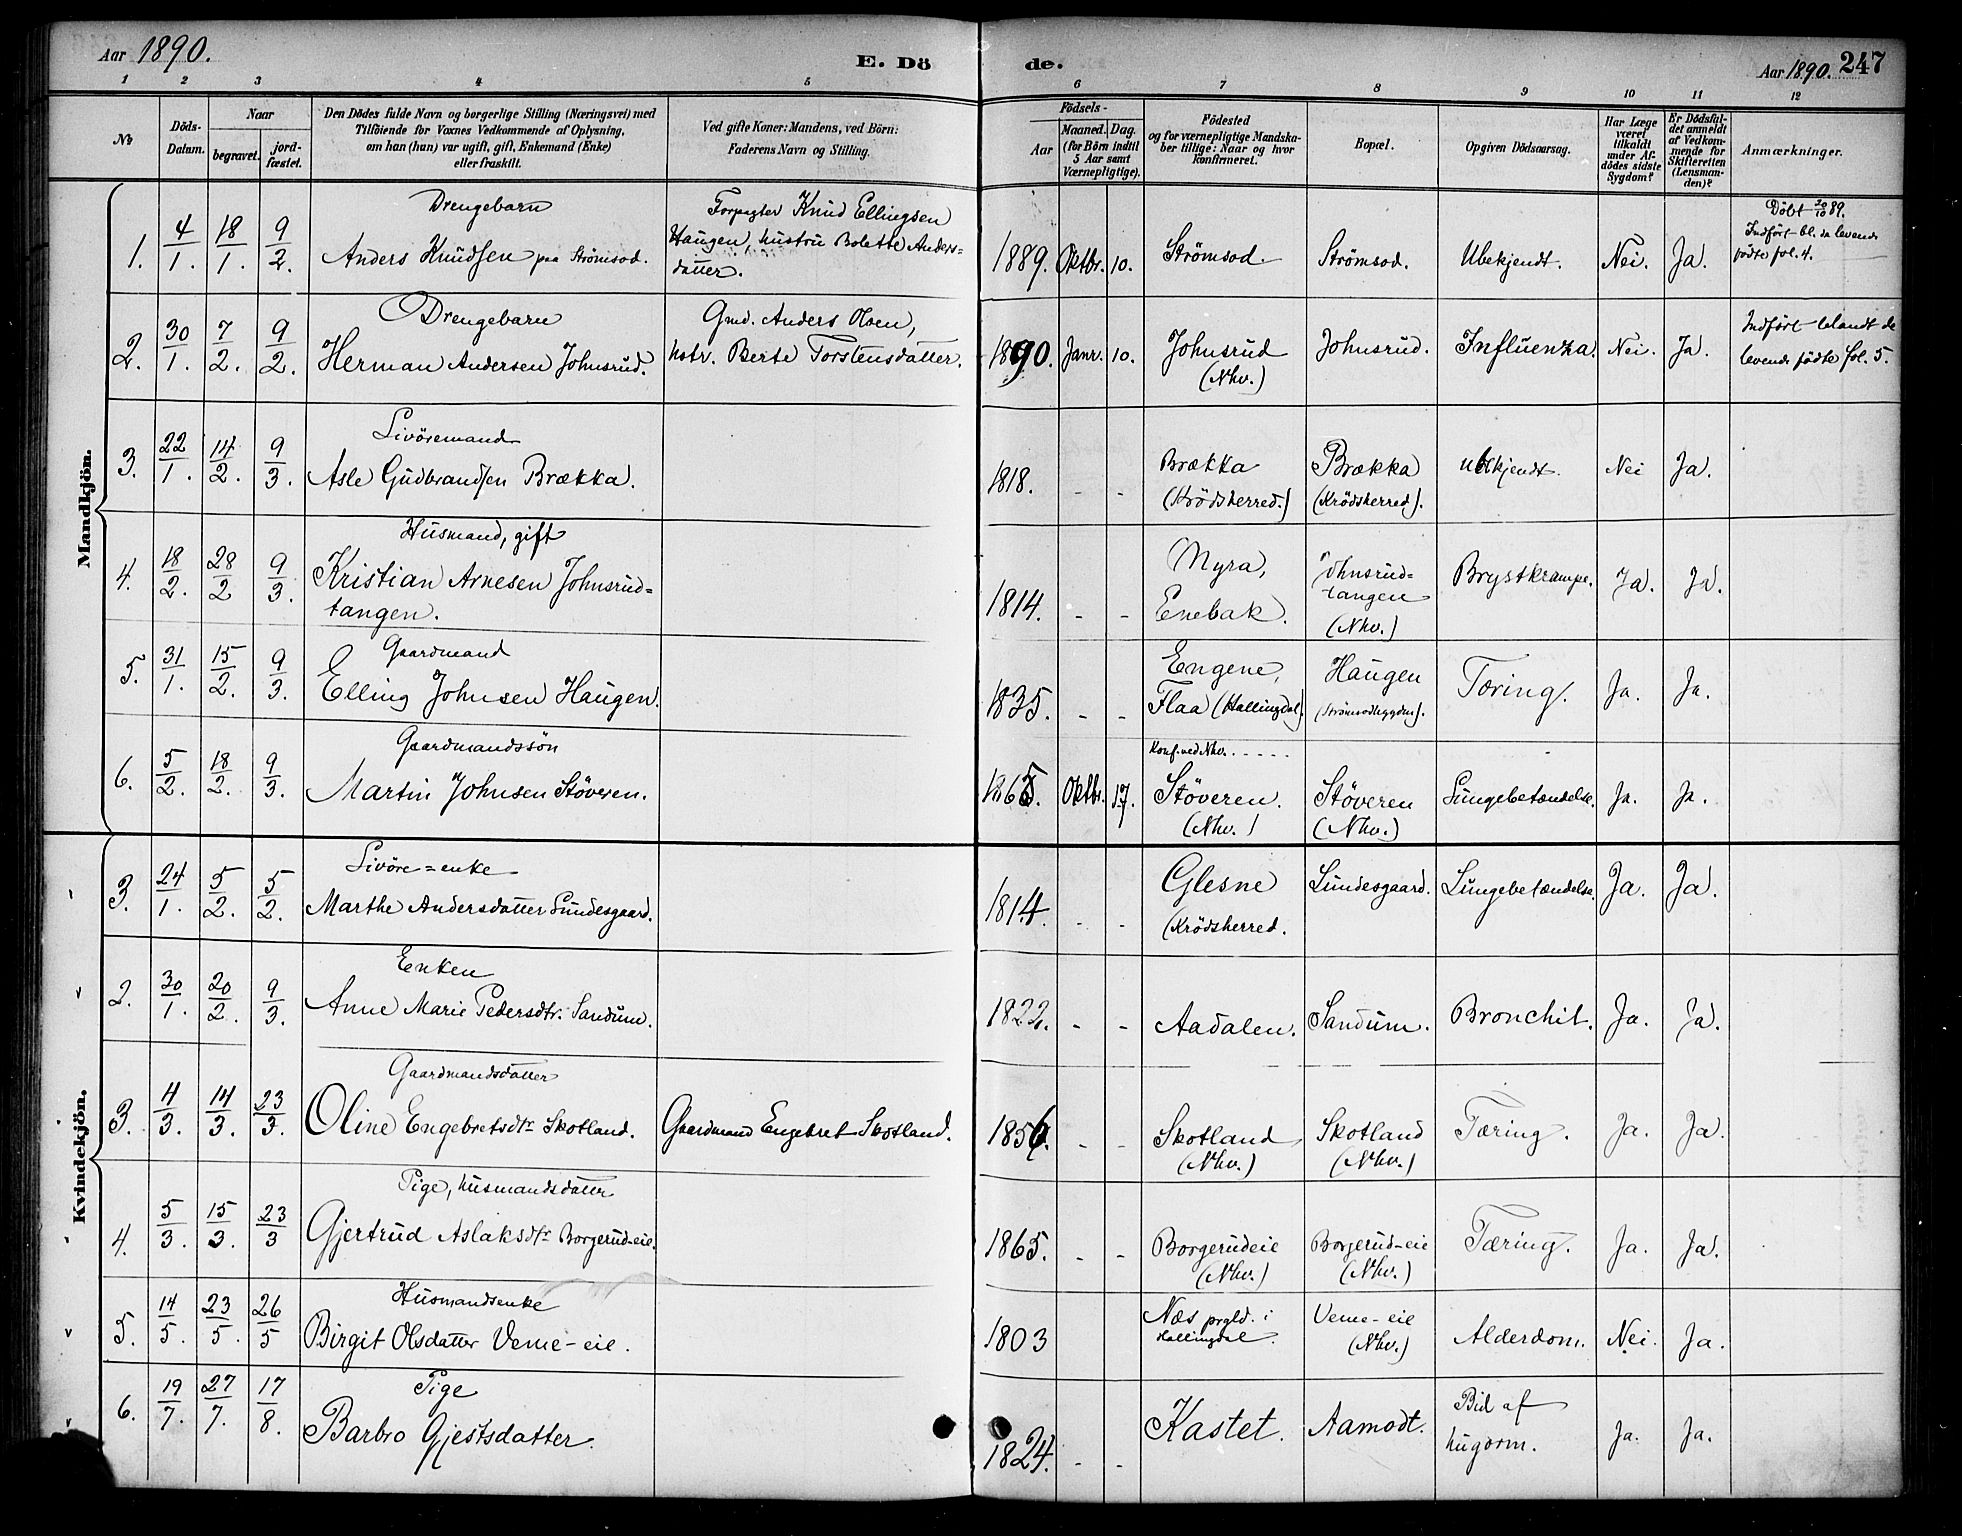 Aar 1890.
E. Dö
de.
Aar 1890. 247
1 2 3 4 5 6 7 8 9 10 11 12
No
Döds-Datum.
Naar
begravet.
jordfæstet.
Den Dödes fulde Navn og borgerlige Stilling (Næringsvei) med
Tilföiende for Voxnes Vedkommende af Oplysning,
om han (hun) var ugift, gift, Enkemand (Enke)
eller fraskilt.
Ved gifte Koner: Mandens, ved Börn:
Faderens Navn og Stilling.
Födsels-
Aar
Maaned. Dag.
(for Börn indtil
5 Aar samt
Værnepligtige).
Födested
og for værnepligtige Mandska-
ber tillige: Naar og hvor
konfirmeret.
Bopæl.
Opgiven Dödsaarsag.
Har Læge
været
tilkaldt
under Af-
dödes sidste
Sygdom?
Er Dödsfal-
det anmeldt
af Vedkom-
mende for
Skifteretten
(Lensman-
den)?
Anmærkninger.
Mandkjön.
1. 4/1. 18/1. 9/2.
Drengebarn
Anders Knudsen paa Strömsod.
Forpagter Knud Ellingsen
Haugen, hustru Bolette Anders=
datter.
1889. Oktbr. 10. Strömsod. Strömsod. Ubekjendt. Nei. Ja.
Döbt 20/10 89.
Indfört bl. de levende
födte fol. 4.
2. 30/1. 7/2. 9/2.
Drengebarn
Herman Andersen Johnsrud.
Gmd. Anders Olsen,
hstr. Berte Torstensdatter.
1890. Janr. 10. Johnsrud
(Nhv.)
Johnsrud. Influenza. Nei. Ja.
Indfört blandt de
levende födte fol. 5.
3. 22/1. 14/2. 9/3.
Livöremand
Asle Gudbrandsen Brækka.
1818. - - Brækka
(Krödsherred.)
Brækka
(Krödsherred).
Ubekjendt. Nei Ja.
4. 18/2. 28/2 9/3.
Husmand, gift
Kristian Arnesen Johnsrud=
tangen.
1814. - - Myra,
Enebak.
Johnsrud=
tangen
(Nhv.)
Brystkrampe. Ja. Ja.
5. 31/1. 15/2. 9/3.
Gaardmand
Elling Johnsen Haugen.
1835. - - Engene,
Flaa (Hallingdal).
Haugen
(Strömsodbygden).
Tæring. Ja. Ja.
6. 5/2. 18/2. 9/3.
Gaardmandssön
Martin Johnsen Stöveren.
1865. Oktbr. 17.
Konf. ved Nhv. . - - - -
Stöveren.
(Nhv.)
Stöveren
(Nhv.)
Lungebetændelse. Ja. Ja.
Kvindekjön.
3. 24/1. 5/2. 5/2.
Livöre=enke
Marthe Andersdatter Lundesgaard.
1814. - - Glesne
(Krödsherred.
Lundesgaard. Lungebetændelse. Ja. Ja.
2. 30/1. 20/2. 9/3.
Enken
Anne Marie Pedersdtr. Sandum.
1822. - - Aadalen. Sandum. Bronchit. Ja. Ja.
3. 4/3. 14/3. 23/3.
Gaardmandsdatter
Oline Engebretsdtr Skotland.
Gaardmand Engebret Skotland.
1856. - - Skotland
(Nhv.)
Skotland
(Nhv.)
Tæring. Ja. Ja.
4. 5/3. 15/3. 23/3
Pige, husmandsdatter
Gjertrud Aslaksdtr Borgerud-eie.
1865. - - Borgerudeie
(Nhv.)
Borgerud-eie
(Nhv.)
Tæring. Ja. Ja.
5. 14/5. 23/5. 26/5
Husmandsenke
Birgit Olsdatter Veme-eie.
1803 Næs prgld. i
Hallingdal.
Veme-eie
(Nhv.)
Alderdom. Nei. Ja.
6. 19/7. 27/7. 17/8.
Pige
Barbro Gjestsdatter.
1824. - - Kastet. Aamodt.
Bid af
hugorm.
Ja. Ja.